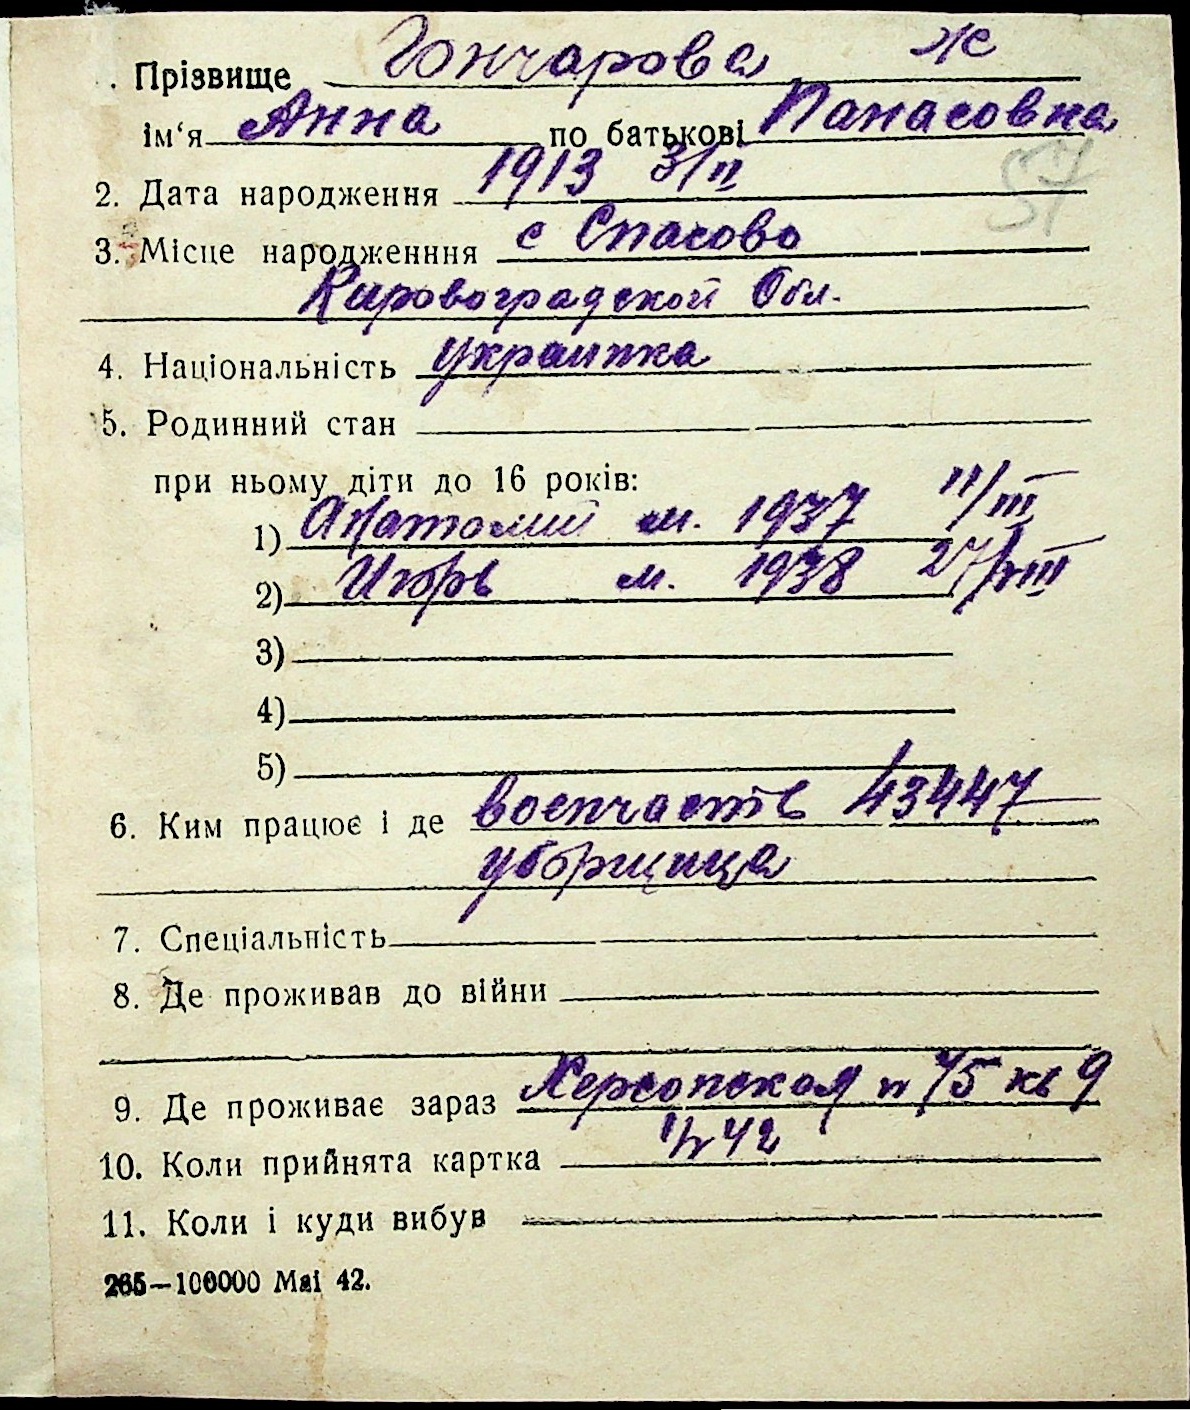 . Прізвище Гончарова ж
ім‘я Анна по батькові Панасовна
57
2. Дата народження 1913 3/II
3. Місце народженння с Спасово
Кировоградской Обл.
4. Національність украинка
5. Родинний стан
при ньому діти до 16 років:
1) Анатолий м. 1937 11/III
2) Игорь м. 1938 27/VIII
3)
4)
5)
6. Ким працює і де воепчасть 43447
уборщица
7. Спеціальність
8. Де проживав до війни
9. Де проживає зараз Херсонская п 75 кв 9
10. Коли прийнята картка 42
11. Коли і куди вибув
265—100000 Маі 42.